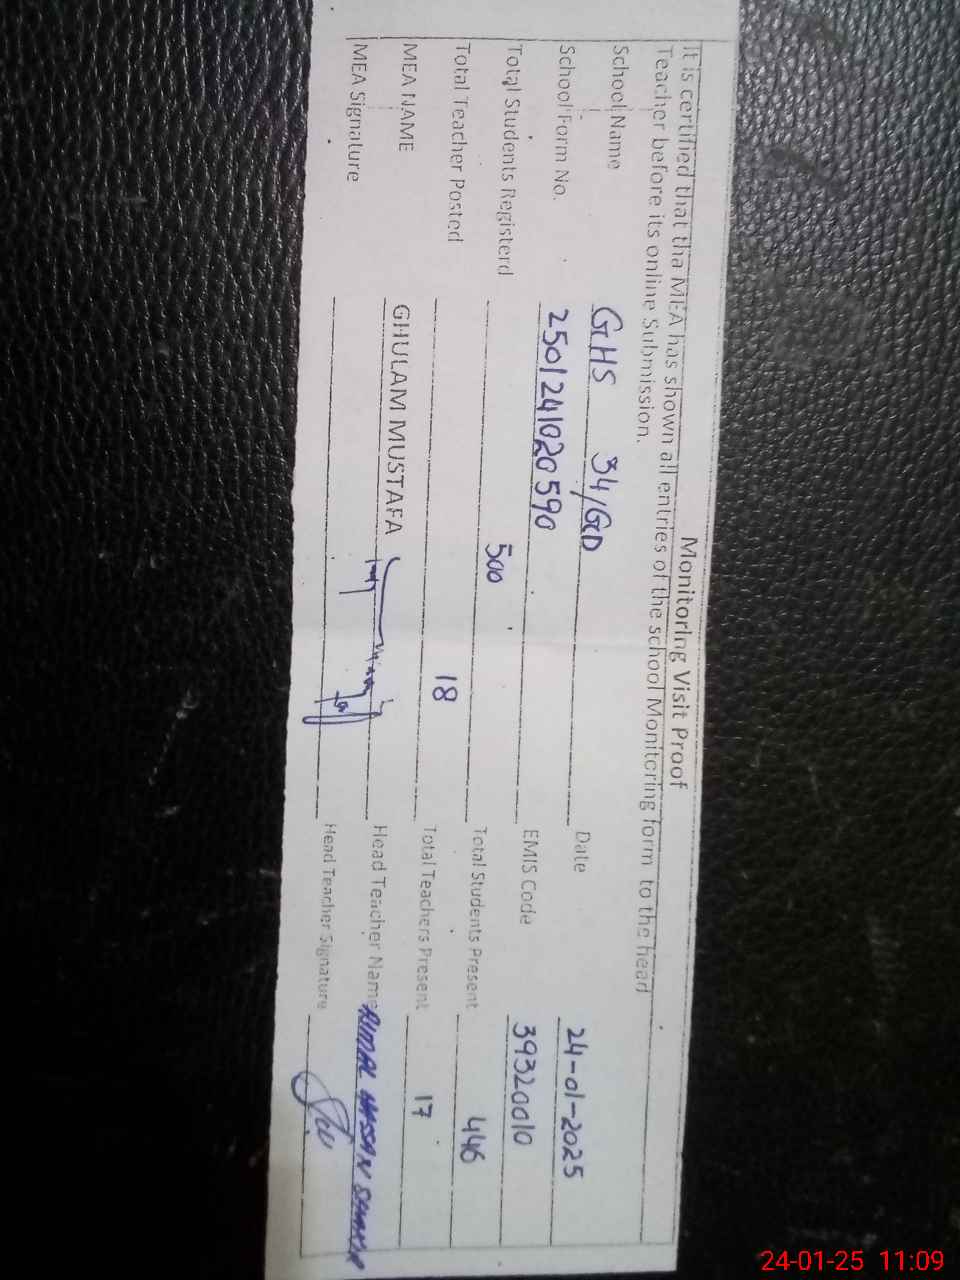 Monitoring Visit Proof
It is certified that tha MEA has shown all entries of the school Monitoring form to the head
Teacher before its online Submission.
School Name GHS 34/GD Date 24-01-2025
School Form No. 2501241020590 EMIS Code 39320010
Total Students Registerd 500 Total Students Present 446
Total Teacher Posted 18 Total Teachers Present 17
MEA NAME GHULAM MUSTAFA Head Teacher Name HASSAN
MEA Signature Head Teacher Signature
24-01-25 11:09